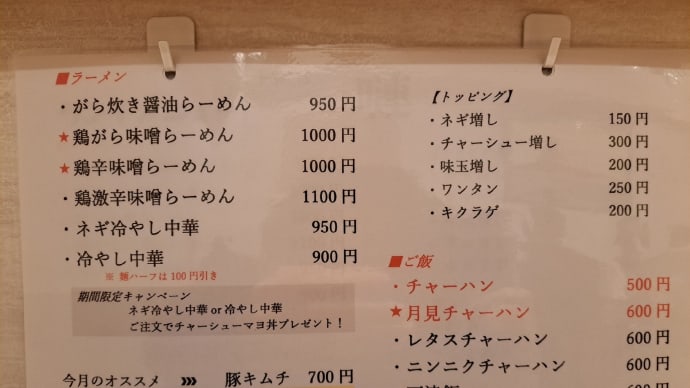 ■ラーメン
・がら炊き醤油らーめん 950円
★鶏がら味噌らーめん 1000円
★鶏辛味噌らーめん 1000円
・鶏激辛味噌らーめん 1100円
・ネギ冷やし中華 950円
・冷やし中華 900円
※ 麺ハーフは100円引き
期間限定キャンペーン
ネギ冷やし中華 or 冷やし中華
ご注文でチャーシューマヨ丼プレゼント！
今月のオススメ ››› 豚キムチ 700円
【トッピング】
・ネギ増し 150円
・チャーシュー増し 300円
・味玉増し 200円
・ワンタン 250円
・キクラゲ 200円
■ご飯
・チャーハン 500円
★月見チャーハン 600円
・レタスチャーハン 600円
・ニンニクチャーハン 600円